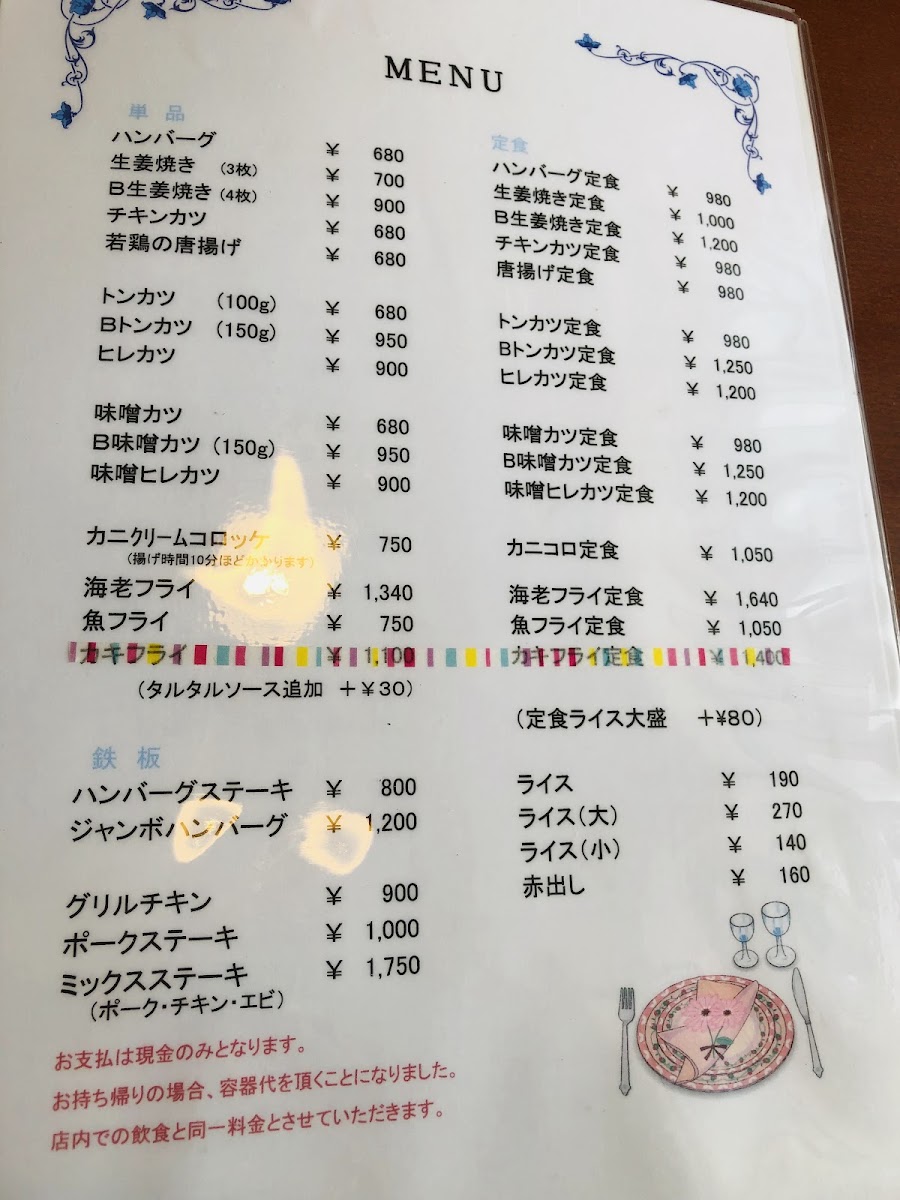 MENU
単品
ハンバーグ ¥ 680
生姜焼き (3枚) ¥ 700
B生姜焼き (4枚) ¥ 900
チキンカツ ¥ 680
若鶏の唐揚げ ¥ 680
トンカツ (100g) ¥ 680
Bトンカツ (150g) ¥ 950
ヒレカツ ¥ 900
味噌カツ ¥ 680
B味噌カツ (150g) ¥ 950
味噌ヒレカツ ¥ 900
カニクリームコロッケ ¥ 750
(揚げ時間10分ほどかかります)
海老フライ ¥ 1,340
魚フライ ¥ 750
カキフライ ¥ 1,100
(タルタルソース追加 +¥30)
鉄板
ハンバーグステーキ ¥ 800
ジャンボハンバーグ ¥ 1,200
グリルチキン ¥ 900
ポークステーキ ¥ 1,000
ミックスステーキ ¥ 1,750
(ポーク・チキン・エビ)
定食
ハンバーグ定食 ¥ 980
生姜焼き定食 ¥ 1,000
B生姜焼き定食 ¥ 1,200
チキンカツ定食 ¥ 980
唐揚げ定食 ¥ 980
トンカツ定食 ¥ 980
Bトンカツ定食 ¥ 1,250
ヒレカツ定食 ¥ 1,200
味噌カツ定食 ¥ 980
B味噌カツ定食 ¥ 1,250
味噌ヒレカツ定食 ¥ 1,200
カニコロ定食 ¥ 1,050
海老フライ定食 ¥ 1,640
魚フライ定食 ¥ 1,050
カキフライ定食 ¥ 1,400
(定食ライス大盛 +¥80)
ライス ¥ 190
ライス(大) ¥ 270
ライス(小) ¥ 140
赤出し ¥ 160
お支払は現金のみとなります。
お持ち帰りの場合、容器代を頂くことになりました。
店内での飲食と同一料金とさせていただきます。